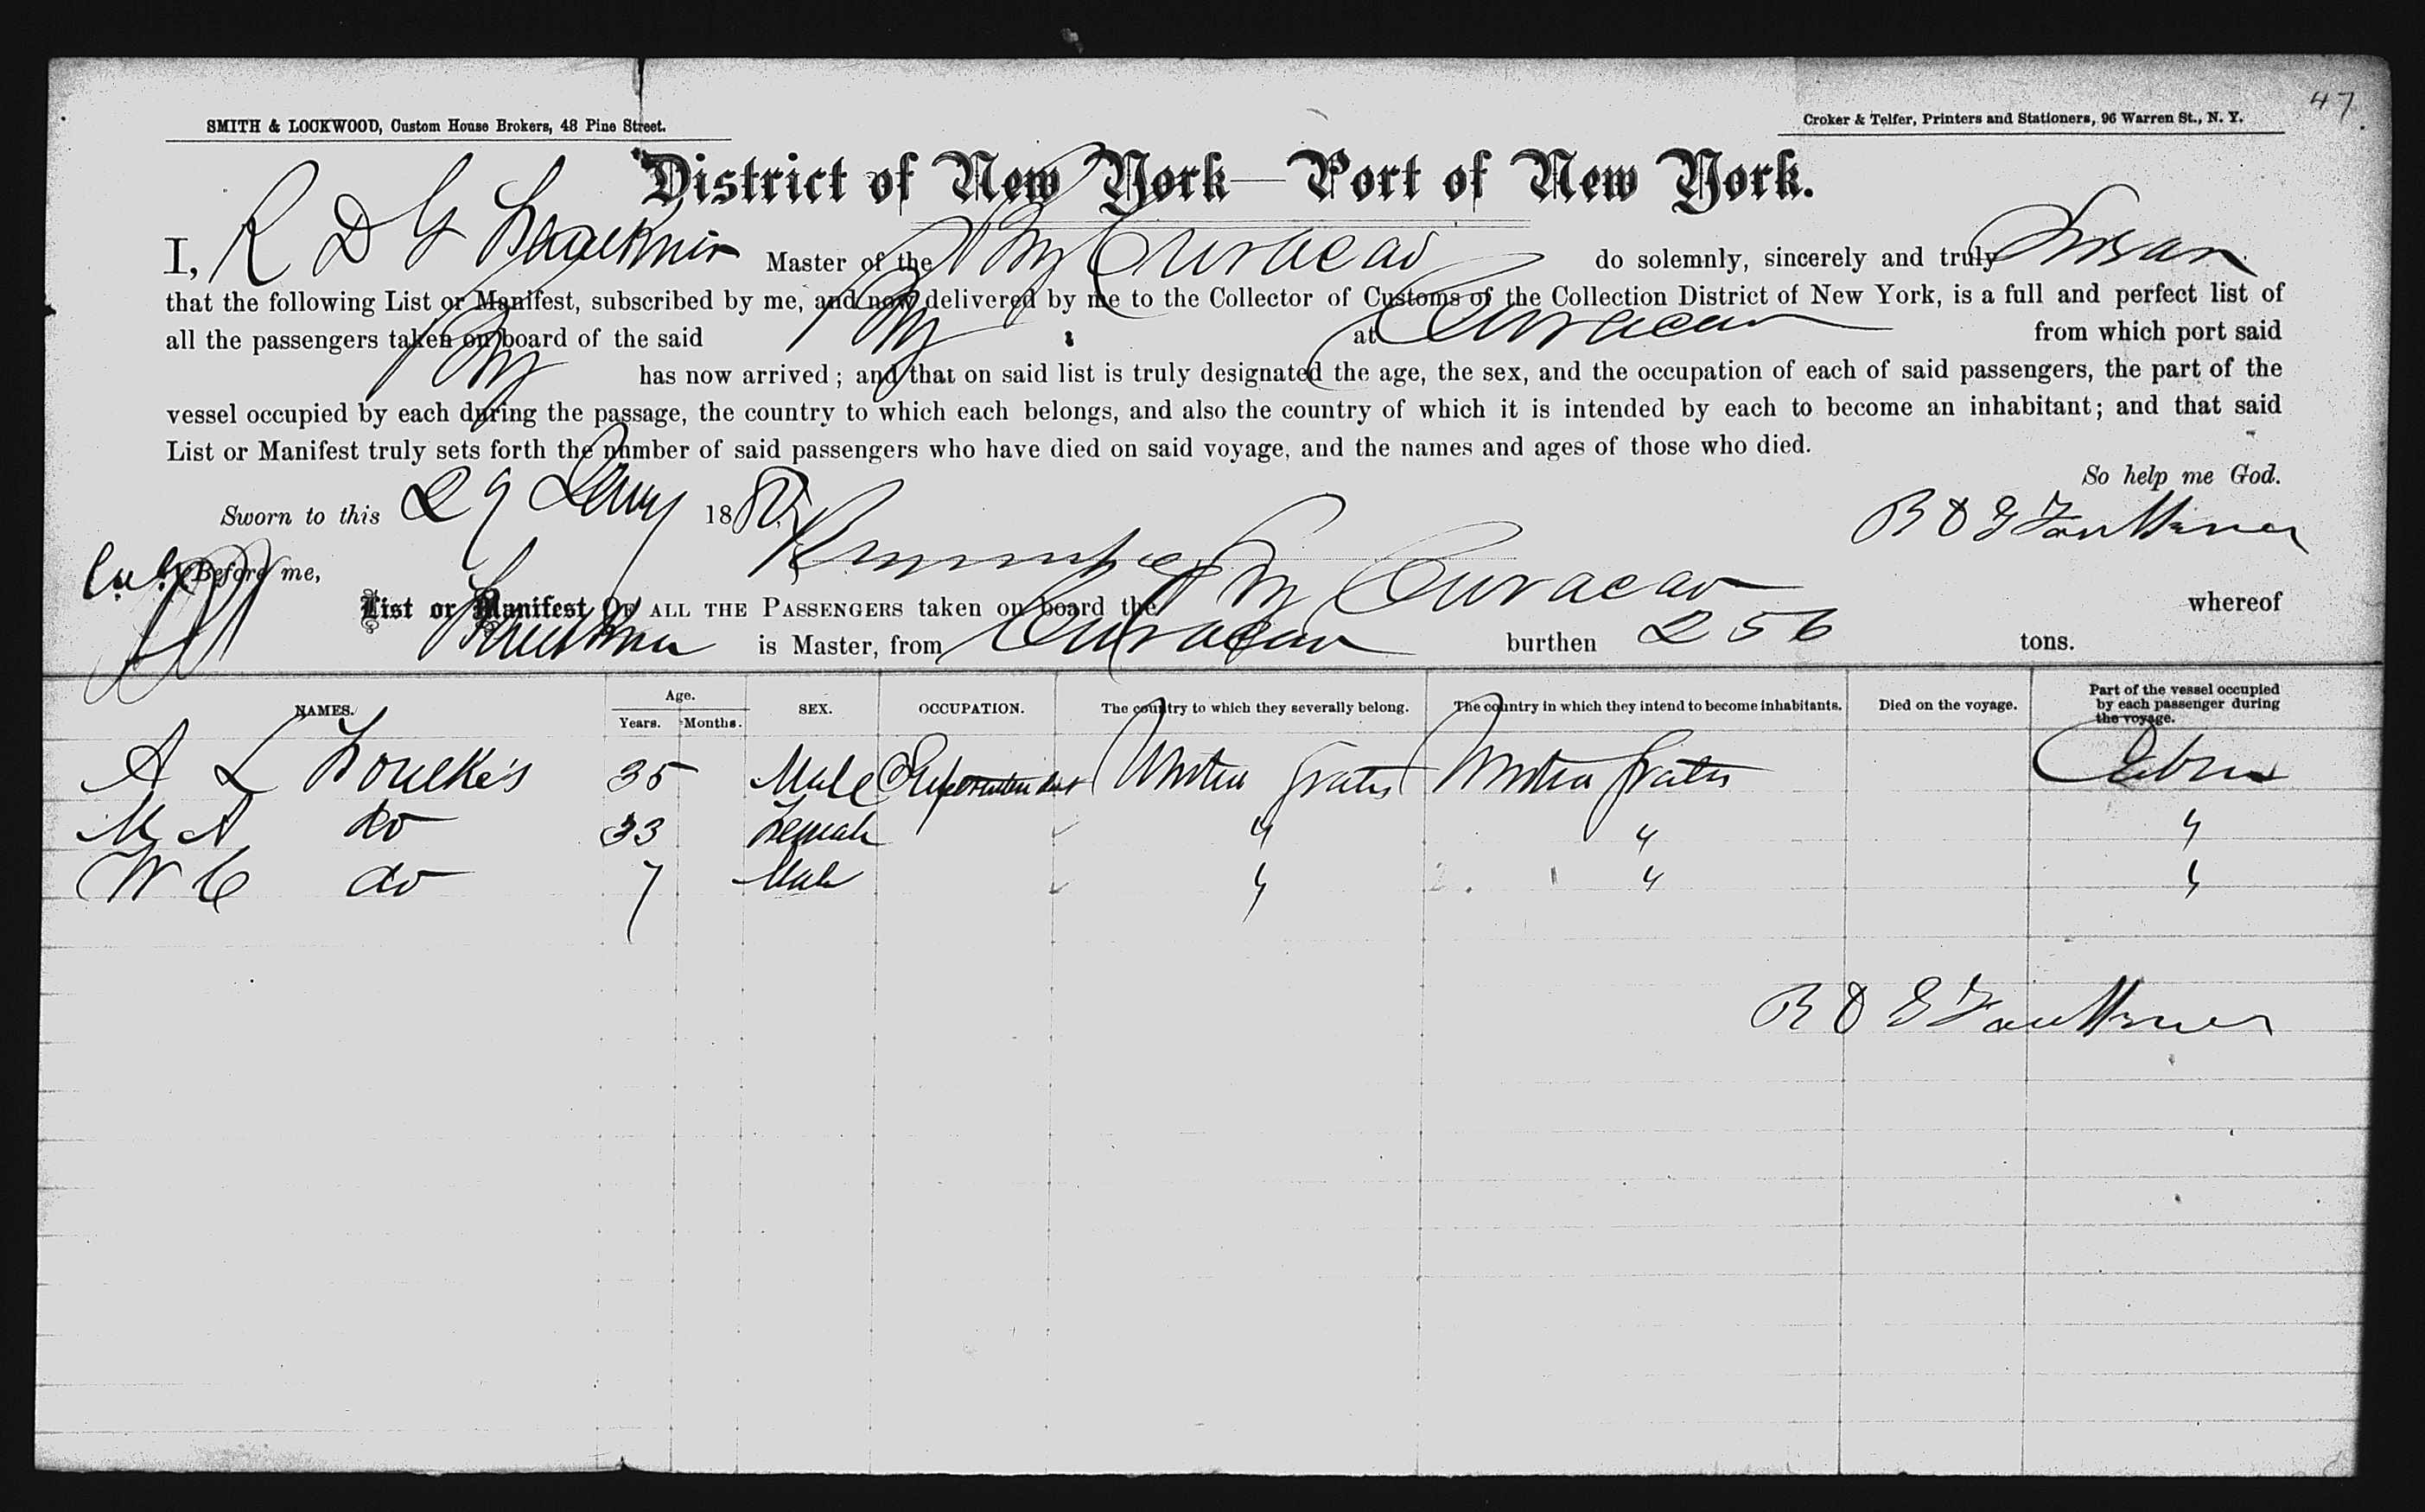 47
SMITH & LOCKWOOD, Custom House Brokers, 48 Pine Street.
Croker & Telfer, Printers and Stationers, 96 Warren St., N. Y.
District of New York—Port of New York.
I, R D G Faulkner Master of the Curacao do solemnly, sincerely and truly Swear
that the following List or Manifest, subscribed by me, and now delivered by me to the Collector of Customs of the Collection District of New York, is a full and perfect list of
all the passengers taken on board of the said at Curacao from which port said
has now arrived; and that on said list is truly designated the age, the sex, and the occupation of each of said passengers, the part of the
vessel occupied by each during the passage, the country to which each belongs, and also the country of which it is intended by each to become an inhabitant; and that said
List or Manifest truly sets forth the number of said passengers who have died on said voyage, and the names and ages of those who died.
So help me God.
Sworn to this 29 18
R D G Faulkner
Before me,
List or Manifest OF ALL THE PASSENGERS taken on board the Curacao whereof
Faulkner is Master, from Curacao burthen 256 tons.
NAMES. Age. Years. Months. SEX. OCCUPATION. The country to which they severally belong. The country in which they intend to become inhabitants. Died on the voyage. Part of the vessel occupied by each passenger during the voyage.
A L Foulke's 35 Male United States United States Cabin
M A do 33 Female " " "
W C do 7 Male " " "
R D G Faulkner